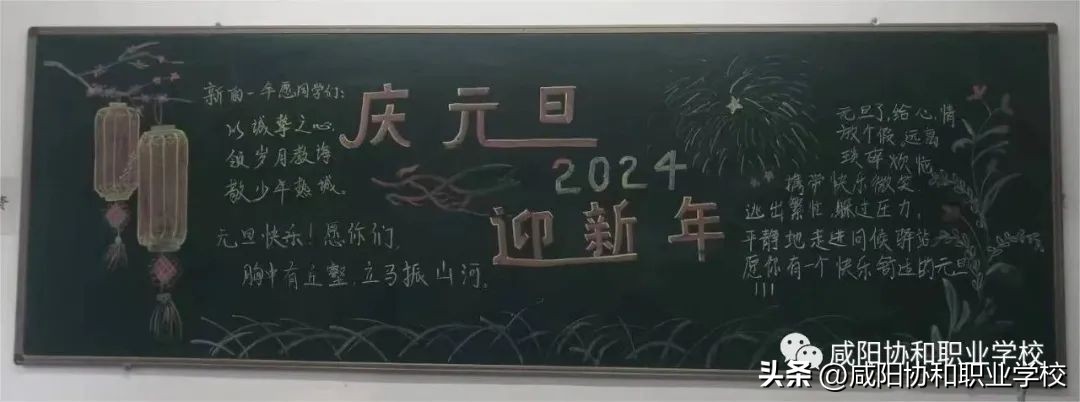 新的一年愿同学们:
以诚挚之心,
领岁月教诲
敬少年热城。
元旦快乐!愿你们,
胸中有丘壑,立马振山河。
庆元旦
2024
迎新年
元旦了,给心情
放个假,远离
琐碎烦恼
携带快乐微笑,
逃出繁忙,躲过压力,
平静地走进问候驿站
愿你有一个快乐舒适的元旦
!!!
咸阳协和职业学校
头条@咸阳协和职业学校